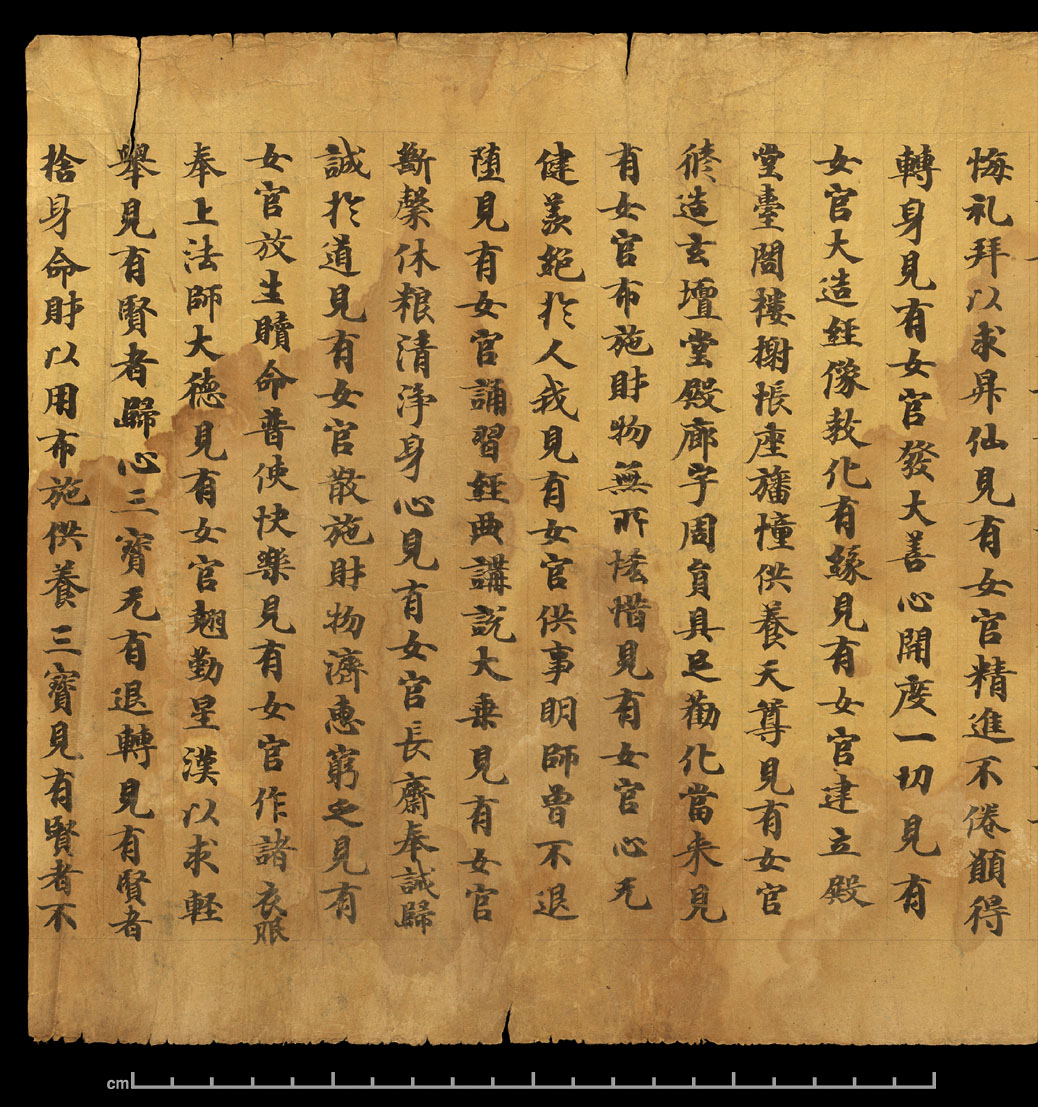 悔礼拜以求昇仙見有女官精進不倦願得
轉身見有女官發大善心開度一切見有
女官大造經像教化有緣見有女官建立殿
堂臺閣樓榭帳座旛憧供養天尊見有女官
修造玄壇堂殿廊宇周負具足勸化當来見
有女官布施財物無所悋惜見有女官心无
健羨絶扵人我見有女官供事明師曾不退
墮見有女官誦習經典講說大乗見有女官
斷穀休粮清浄身心見有女官長齋奉誡歸
誠扵道見有女官散施財物濟惠窮乏見有
女官放生贖命普使快樂見有女官作諸衣服
奉上法師大德見有女官翹勤星漢以求輕
舉見有賢者歸心三寶无有退轉見有賢者
捨身命財以用布施供養三寶見有賢者不